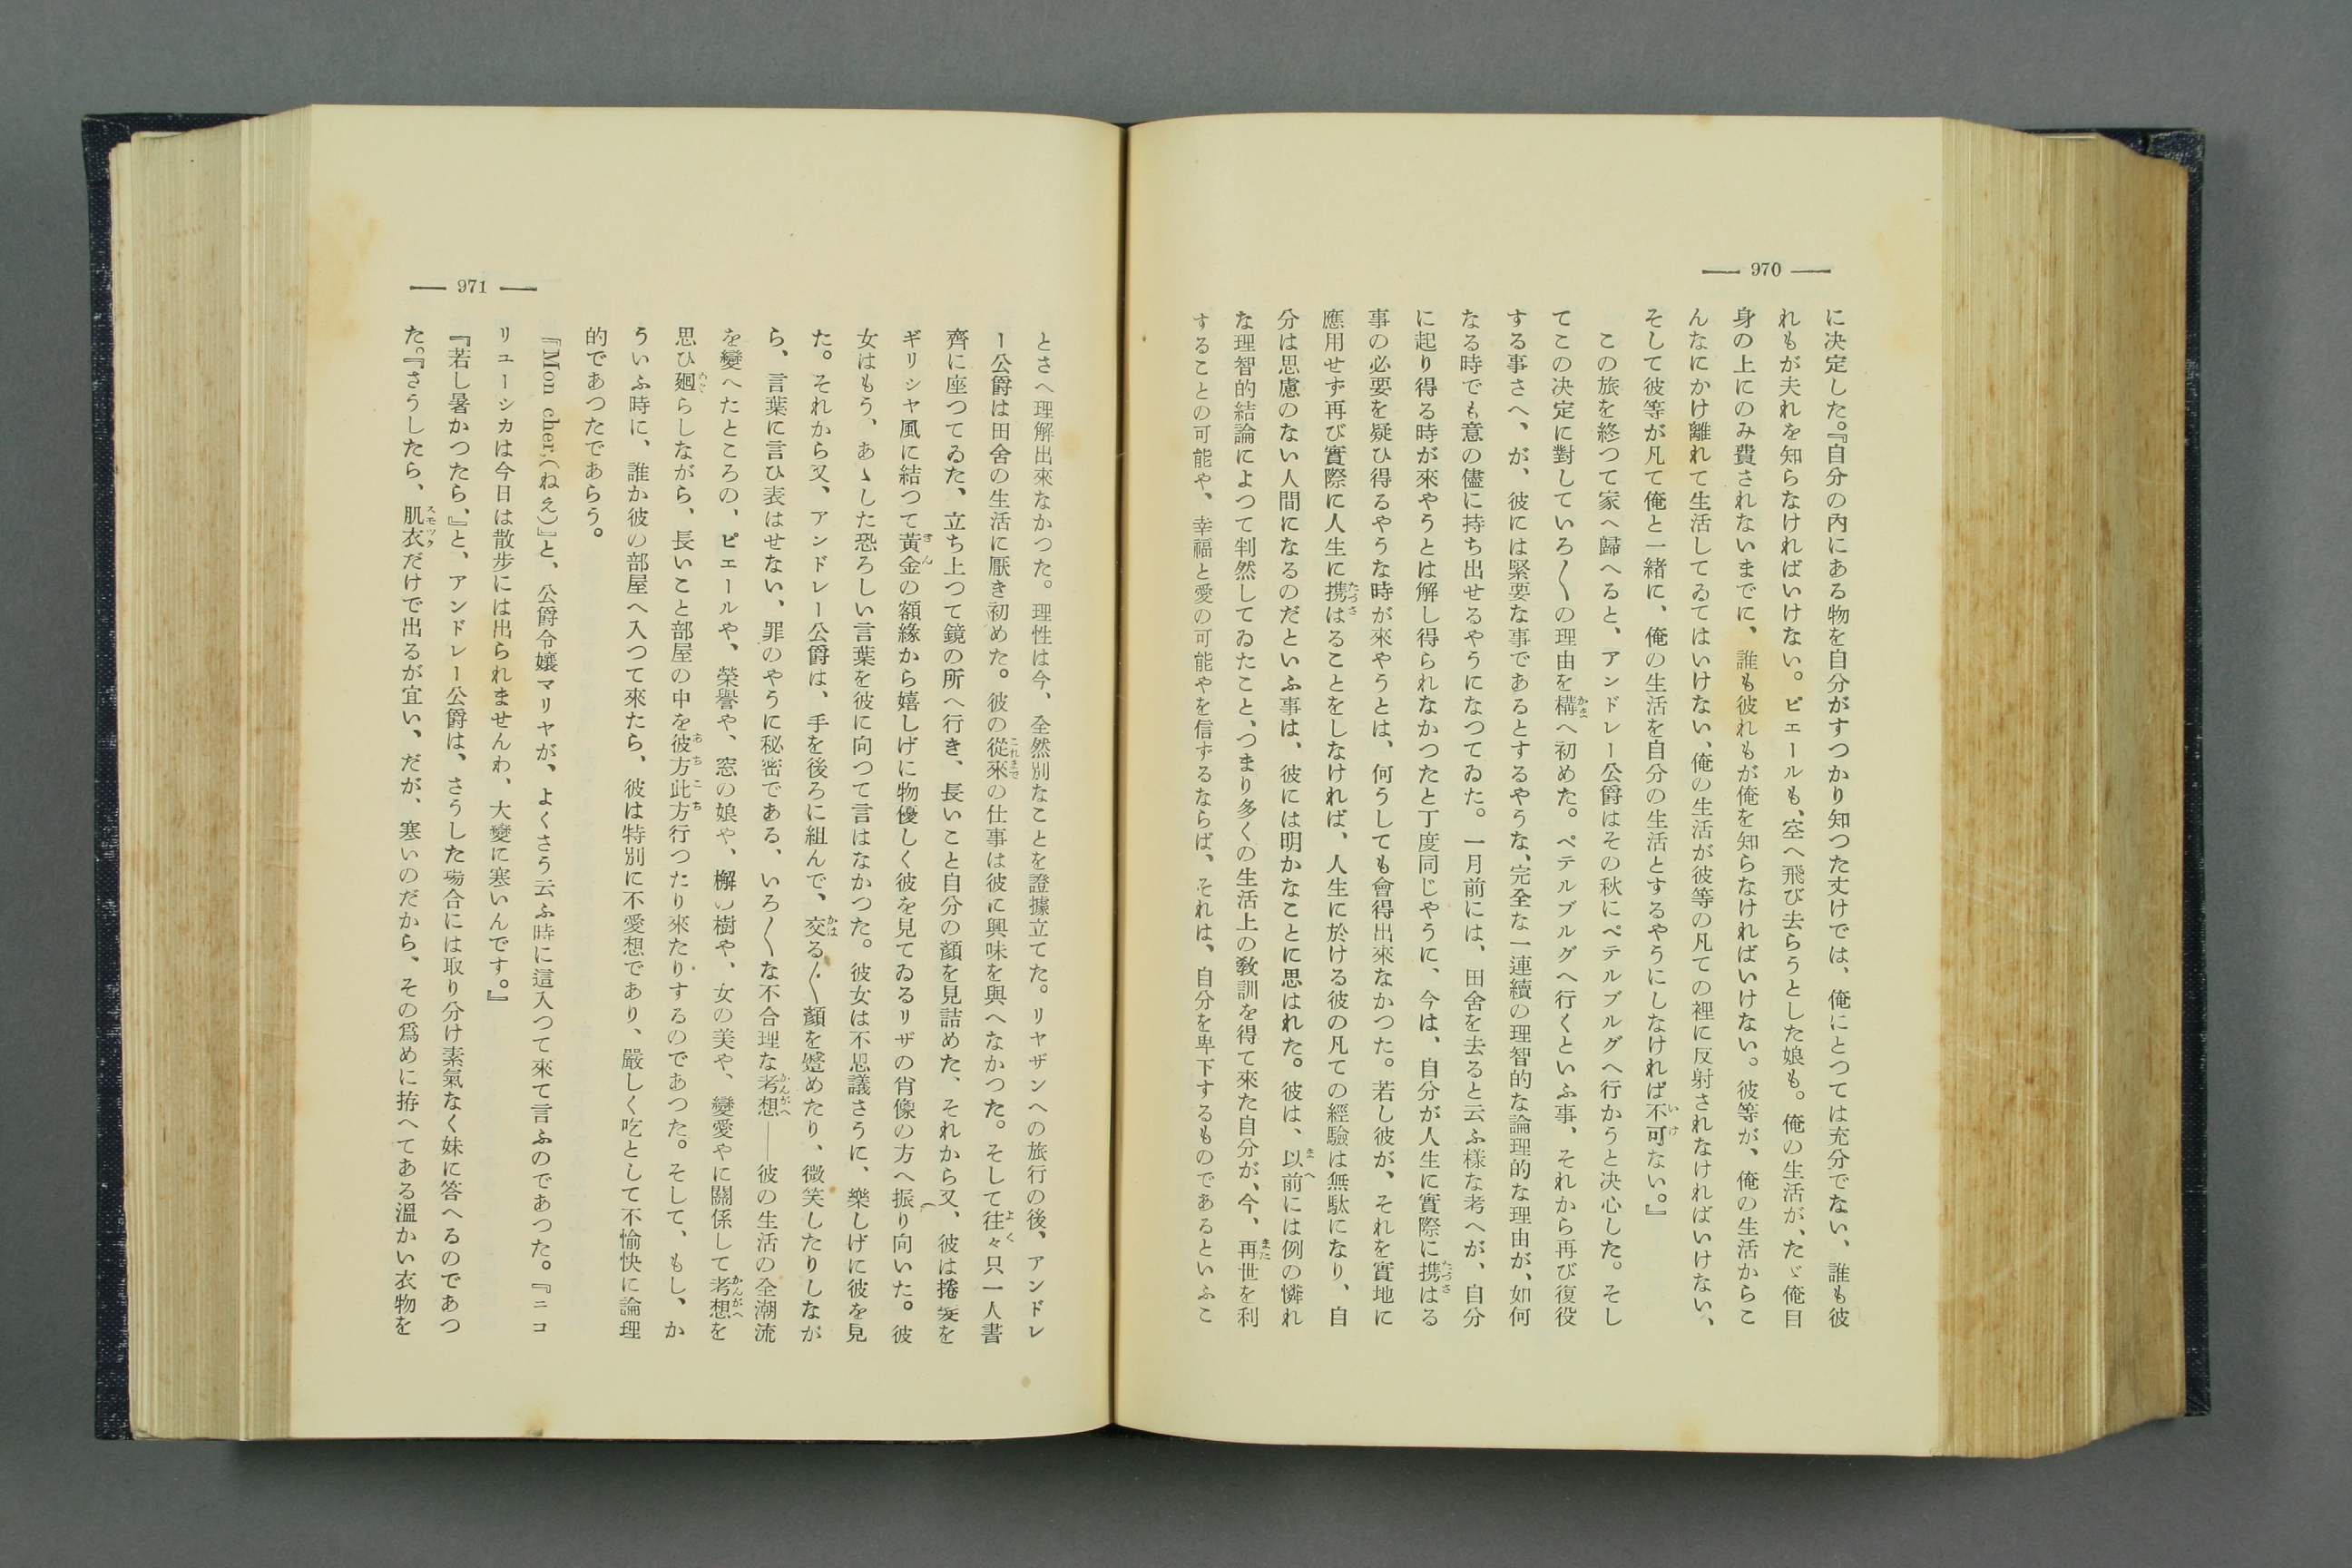 — 970 —
に決定した。『自分の內にある物を自分がすつかり知つた丈けでは、俺にとつては充分でない、誰も彼
れもが夫れを知らなければいけない。ピエールも、空へ飛び去らうとした娘も。俺の生活が、たゞ俺自
身の上にのみ費されないまでに、誰も彼れもが俺を知らなければいけない。彼等が、俺の生活からこ
んなにかけ離れて生活してゐてはいけない、俺の生活が彼等の凡ての裡に反射されなければいけない、
そして彼等が凡て俺と一緖に、俺の生活を自分の生活とするやうにしなければ不可ない。』
この旅を終つて家へ歸へると、アンドレー公爵はその秋にペテルブルグへ行かうと決心した。そし
てこの決定に對していろ〱の理由を構へ初めた。ペテルブルグへ行くといふ事、それから再び復役
する事さへ、が、彼には緊要な事であるとするやうな、完全な一連續の理智的な論理的な理由が、如何
なる時でも意の儘に持ち出せるやうになつてゐた。一月前には、田舍を去ると云ふ樣な考へが、自分
に起り得る時が來やうとは解し得られなかつたと丁度同じやうに、今は、自分が人生に實際に携はる
事の必要を疑ひ得るやうな時が來やうとは、何うしても會得出來なかつた。若し彼が、それを實地に
應用せず再び實際に人生に携はることをしなければ、人生に於ける彼の凡ての經驗は無駄になり、自
分は思慮のない人間になるのだといふ事は、彼には明かなことに思はれた。彼は、以前には例の憐れ
な理智的結論によつて判然してゐたこと、つまり多くの生活上の敎訓を得て來た自分が、今、再世を利
することの可能や、幸福と愛の可能やを信ずるならば、それは、自分を卑下するものであるといふこ
— 971 —
とさへ理解出來なかつた。理性は今、全然別なことを證據立てた。リヤザンへの旅行の後、アンドレ
ー公爵は田舍の生活に厭き初めた。彼の從來の仕事は彼に興味を與へなかつた。そして往々只一人書
齊に座つてゐた、立ち上つて鏡の所へ行き、長いこと自分の顏を見詰めた、それから又、彼は捲髮を
ギリシヤ風に結つて黃金の額緣から嬉しげに物優しく彼を見てゐるリザの肖像の方へ振り向いた。彼
女はもう、あゝした恐ろしい言葉を彼に向つて言はなかつた。彼女は不思議さうに、樂しげに彼を見
た。それから又、アンドレー公爵は、手を後ろに組んで、交る〱顏を蹙めたり、微笑したりしなが
ら、言葉に言ひ表はせない、罪のやうに秘密である、いろ〱な不合理な考想——彼の生活の全潮流
を變へたところの、ピエールや、榮譽や、窓の娘や、檞の樹や、女の美や、戀愛やに關係して考想を
思ひ廻らしながら、長いこと部屋の中を彼方此方行つたり來たりするのであつた。そして、もし、か
ういふ時に、誰か彼の部屋へ入つて來たら、彼は特別に不愛想であり、嚴しく吃として不愉快に論理
的であつたであらう。
『Mon cher,(ねえ)』と、公爵令孃マリヤが、よくさう云ふ時に這入つて來て言ふのであつた。『ニコ
リューシカは今日は散步には出られませんわ、大變に寒いんです。』
『若し暑かつたら、』と、アンドレー公爵は、さうした場合には取り分け素氣なく妹に答へるのであつ
た。『さうしたら、肌衣だけで出るが宜い、だが、寒いのだから、その爲めに拵へてある溫かい衣物を